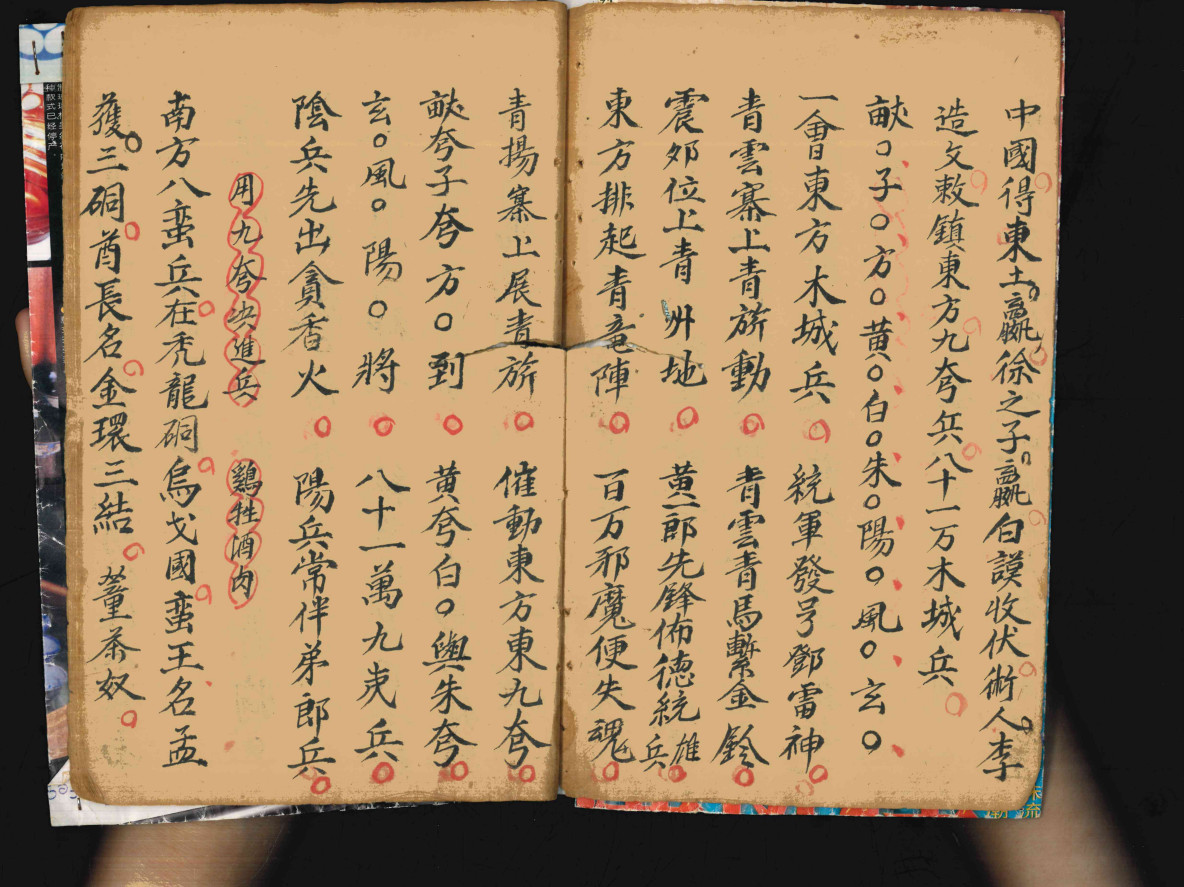 中國得東土。贏徐之子。贏白謨收伏術人。李
造文敕鎮東方九夸兵八十一万木城兵
畎○子○方○黄○白朱○陽○風○玄○
一會東方木城兵 統軍發号鄧雷神
青雲寨上青旂動 青雲青馬繫金鈴
震夘位上青州地 黄一郎先鋒佈德統雄兵
東方排起青竜陣 百万邪魔便失魂
青揚寨上展青旂 催動東方東九夸
畎夸子夸方○到 黄夸白○與朱夸
玄○風○陽○將 八十一萬九夷兵
陰兵先出貪香火 陽兵常伴弟郎兵
用九夸決進兵 鷄牲酒肉
南方八蛮兵在秃龍硐烏戈國蛮王名孟
獲。三硐酋長名金環三結 董荼奴